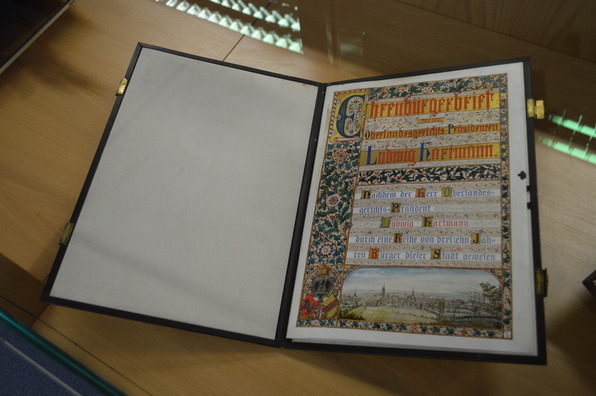 Ehrenbürgerbrief
Oberlandesgerichts Präsidenten
Ludwig Hartmann.
Nachdem der Herr Oberlandes-
gerichts-Präsident
Ludwig Hartmann
durch eine Reihe von dreizehn Jah-
ren Bürger dieser Stadt gewesen